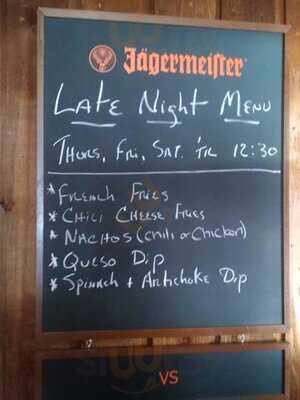 Jägermeister
Late Night Menu
Thurs, Fri, Sat. 'til 12:30
* French Fries
* Chili Cheese Fries
* Nachos (Chili or Chicken)
* Queso Dip
* Spinach + Artichoke Dip
VS